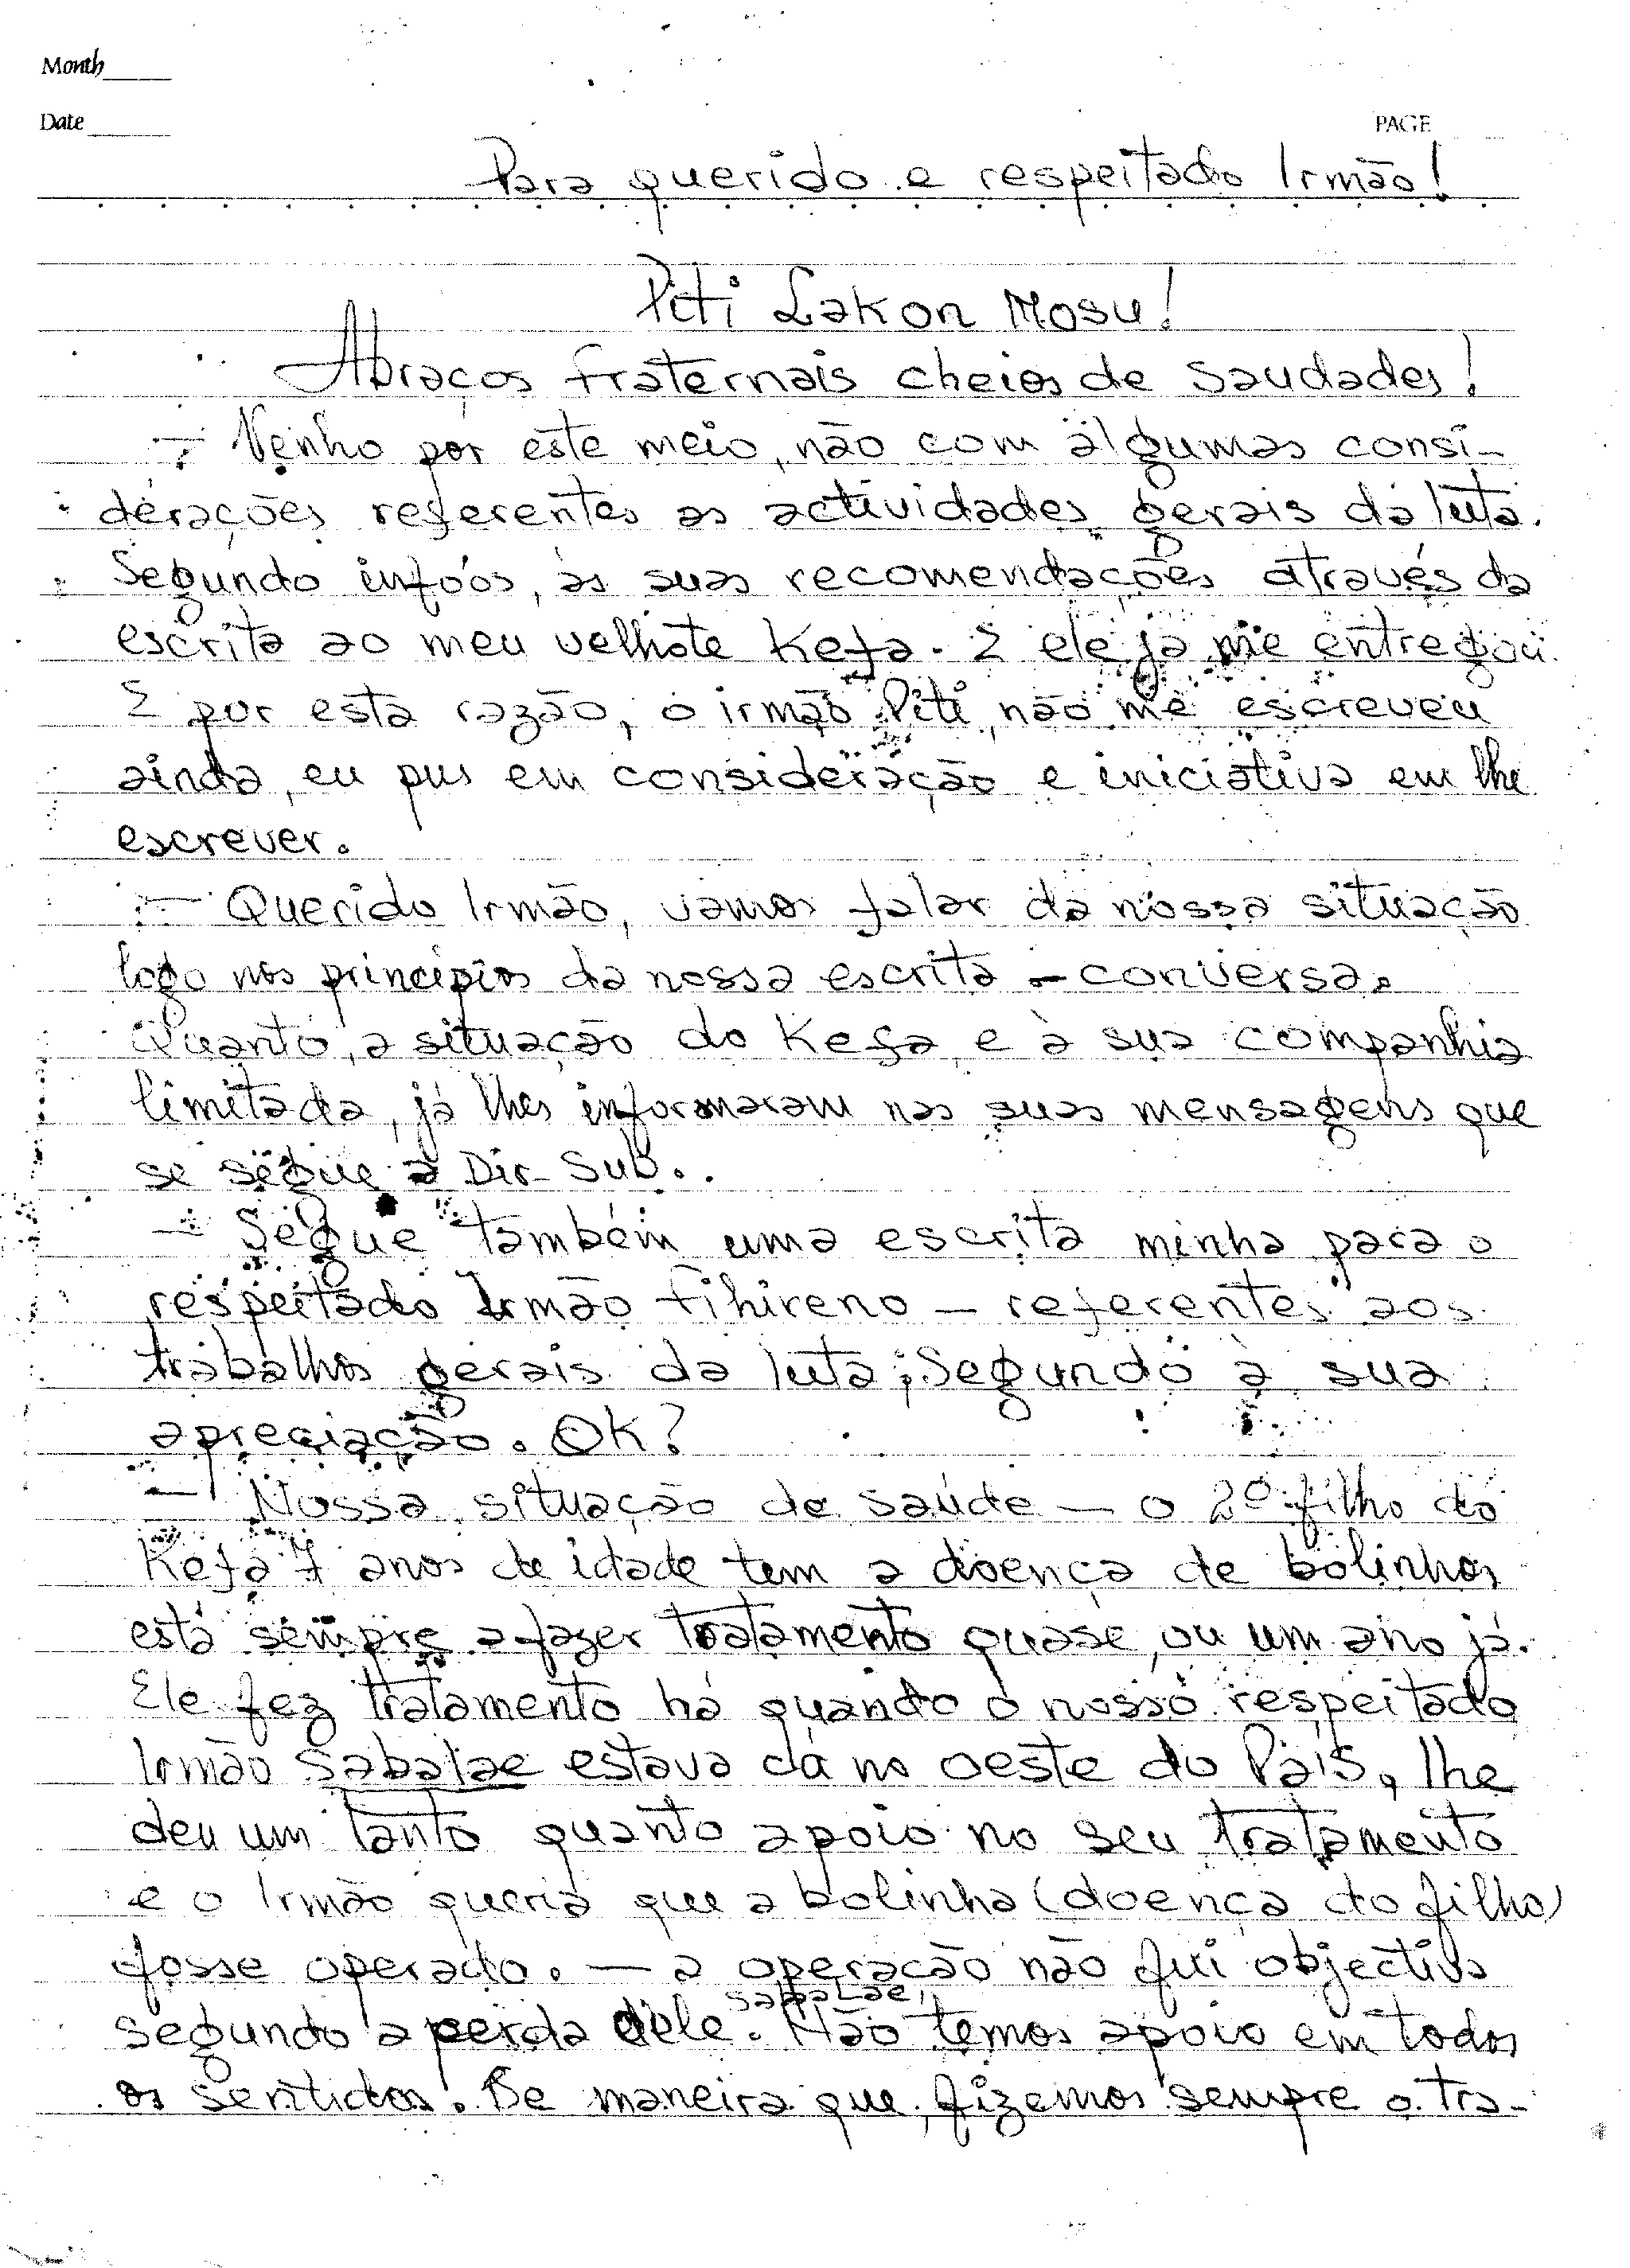 Month
Date
PAGE
Para querido e respeitado Irmão!
Piti Lakon Mosu!
Abraços fraternais cheios de saudades!
— Venho por este meio, não com algumas consi-
derações referentes as actividades gerais da luta.
Segundo info's, as suas recomendações através da
escrita ao meu velhote Kefa. E ele já me entregou.
E por esta razão, o irmão Piti, não me escreveu
ainda, eu pus em consideração e iniciativa em lhe
escrever.
— Querido Irmão, vamos falar da nossa situação
logo nos princípios da nossa escrita - conversa.
Quanto, a situação do Kefa, e à sua companhia
limitada, já lhes informaram nas suas mensagens que
se segue a Dir- Sub.
— Segue também uma escrita minha para o
respeitado Irmão Fihireno — referentes aos
trabalhos gerais da luta; Segundo à sua
apreciação. OK?
— Nossa situação de saúde — o 2º filho do
Kefa 7 anos de idade tem a doença de bolinhas
está sempre a fazer tratamento quase, ou um ano já.
Ele fez tratamento há quando o nosso respeitado
Irmão Sabalae estava cá no oeste do País, lhe
deu um tanto quanto apoio no seu tratamento
e o Irmão queria que a bolinha (doença do filho)
fosse operado. — a operação não fui objectivo
segundo a perda dele. Sabalae, Não temos apoio em todos
os sentidos. De maneira que, fizemos sempre o tra-